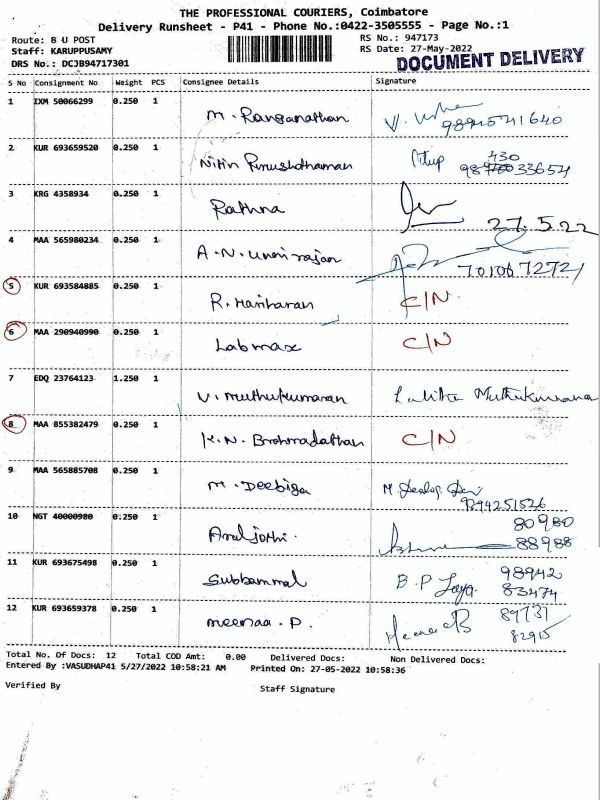 THE PROFESSIONAL COURIERS, Coimbatore
Delivery Runsheet - P41 - Phone No.:0422-3505555 - Page No.:1
Route: B U POST
RS No.: 947173
Staff: KARUPPUSAMY
RS Date: 27-May-2022
DRS No.: DCJB94717301
DOCUMENT DELIVERY
S No Consignment No Weight PCS Consignee Details Signature
1 IXM 50066299 0.250 1 M. Ranganathan
2 KUR 693659520 0.250 1 Nitin Purushothaman
3 KRG 4358934 0.250 1 Rathna 27.5.22
4 MAA 565980234 0.250 1 A.N. Unnirajan 7010672721
5 KUR 693584885 0.250 1 R. Hariharan C/N
6 MAA 290940990 0.250 1 Labmax C/N
7 EDQ 23764123 1.250 1 V. Muthukumaran Lalitha Muthukumara
8 MAA 855382479 0.250 1 K.N. C/N
9 MAA 565885708 0.250 1 M. Deebiga 9294251526
10 NGT 40000980 0.250 1 Aruljothi. 80980
88988
11 KUR 693675498 0.250 1 Subbammal B.P Jaya. 98942
83474
12 KUR 693659378 0.250 1 Meenaa.P. 89731
82915
Total No. Of Docs: 12 Total COD Amt: 0.00 Delivered Docs: Non Delivered Docs:
Entered By :VASUDHAP41 5/27/2022 10:58:21 AM Printed On: 27-05-2022 10:58:36
Verified By Staff Signature